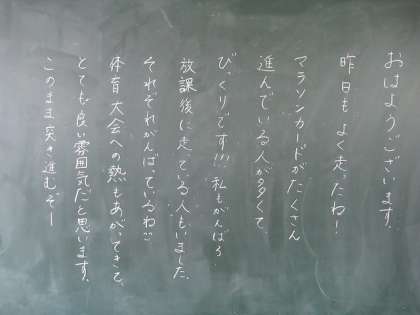 おはようございます。
昨日もよく走ったね！
マラソンカードがたくさん
進んでいる人が多くて、
びっくりです!!! 私もがんばろ
放課後に走っている人もいました。
それぞれがんばっているね!!
体育大会への熱もあがってきて、
とても良い雰囲気だと思います。
このまま突き進むぞー